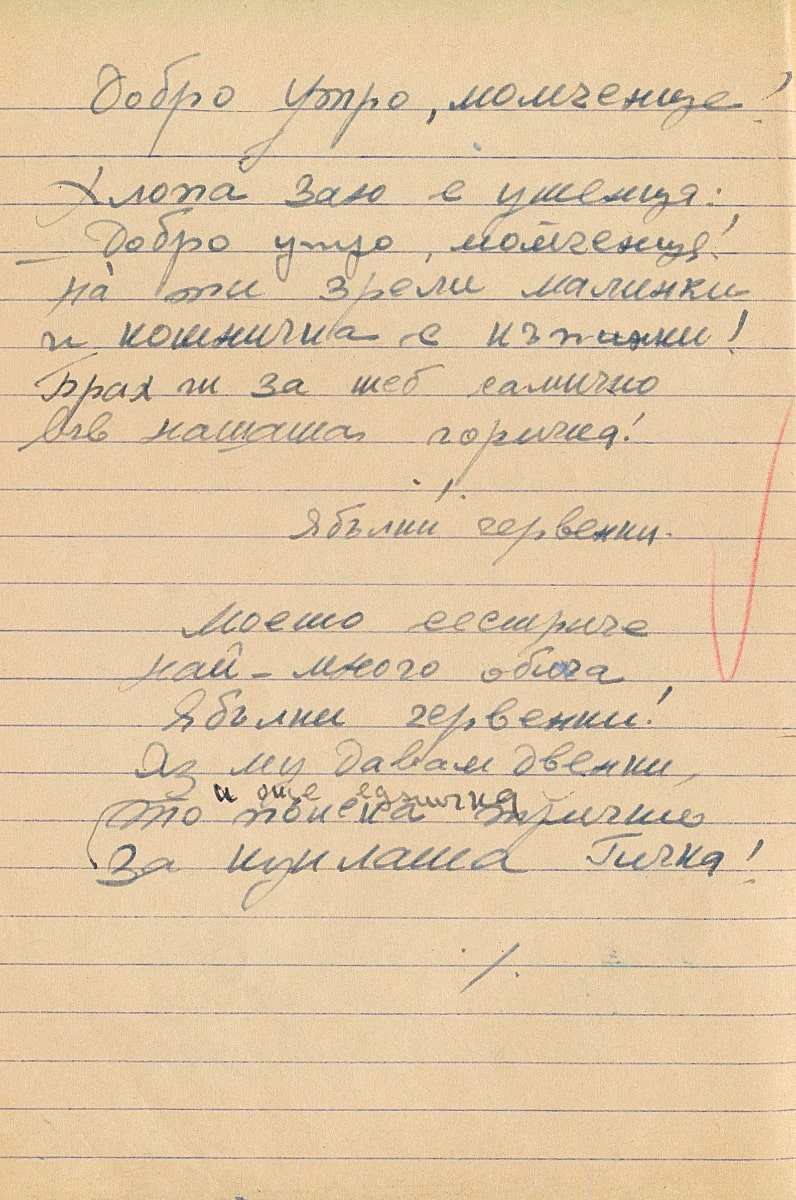 Добро утро, момченце!
Хлопа Заю с ушенца:
– Добро утро, момченца!
На ти зрели малинки
и кошничка с къпинки!
Брах ги за теб самичко
във нашата горичка!
./.
Ябълки червенки.
Моето сестриче
най-много обича
Ябълки червенки!
Аз му давам двенки,
и още едничка
то поиска трично
За куклата Гичка!
./.